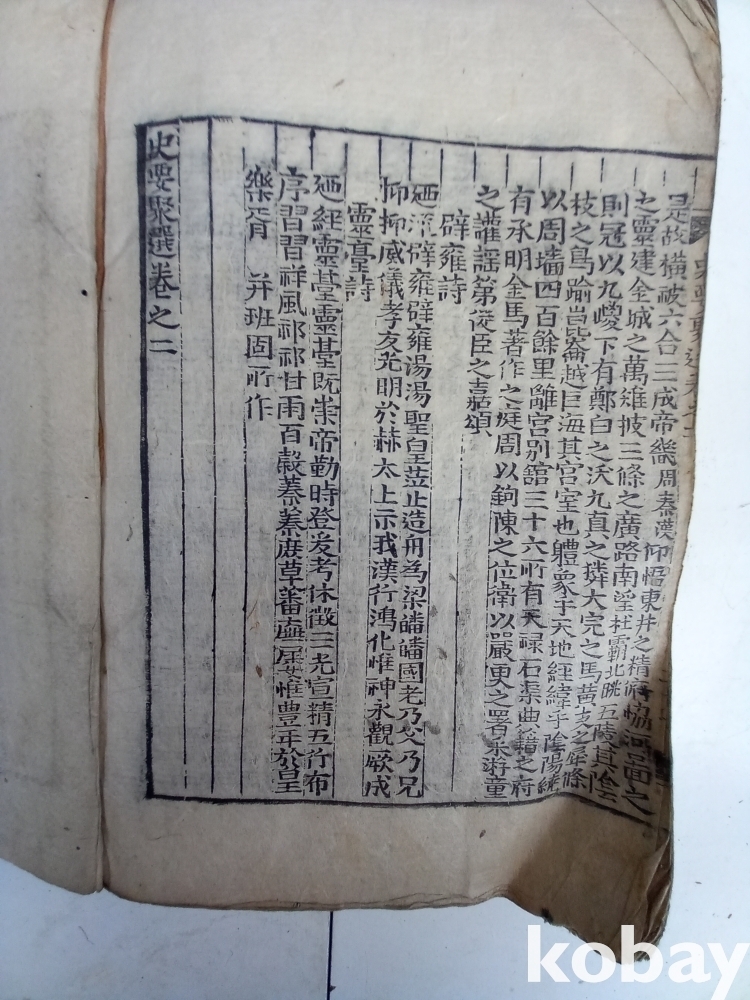 是故橫被六合三成帝畿周秦漢仰悟東井之精俯協河圖之
之靈建金城之萬雉披三條之廣路南望杜霸北眺五陵其陰
則冠以九嵕下有鄭白之沃九真之獜大宛之馬黃支之犀條
枝之鳥踰崑崙越巨海其宮室也軆象乎天地經緯乎陰陽繞
以周墻四百餘里離宮別舘三十六所有天祿石渠典籍之府
有承明金馬著作之庭周以鉤陳之位衛以嚴更之署采遊童
之讙謠第從臣之嘉頌
辟雍詩
廼流辟雍辟雍湯湯聖皇莅止造舟為梁皤皤國老乃父乃兄
抑抑威儀孝友光明於赫太上示我漢行鴻化惟神永觀厥成
靈臺詩
廼經靈臺靈臺既崇帝勤時登爰考休徵三光宣精五行布
序習習祥風祁祁甘雨百穀蓁蓁庶草蕃廡屢惟豊年於皇
樂胥 并班固所作
史要聚選卷之二
kobay